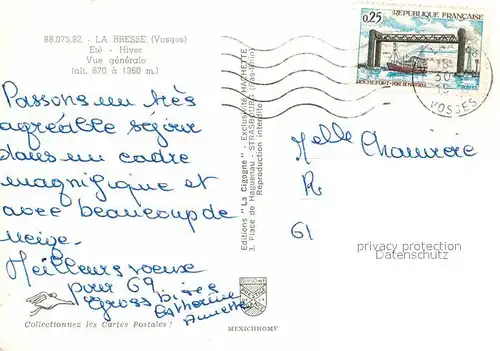 88.075.82 - LA BRESSE (Vosges)
Eté - Hiver
Vue générale
(alt. 670 à 1360 m.)
Passons un très
agréable séjour
dans un cadre
magnifique et
avec beaucoup de
neige.
Meilleurs voeux
pour 69
Gross bises
Catherine
Annette
Collectionnez les Cartes Postales !
MEXICHROME
Editions "La Cigogne" - Exclusivité HACHETTE
3, Place de Haguenau - STRASBOURG (Bas-Rhin)
Reproduction interdite
0,25
REPUBLIQUE FRANÇAISE
ROCHEFORT - PONT DE MARTROU
POSTES
VOSGES
Melle
R
61
privacy protection
Datenschutz